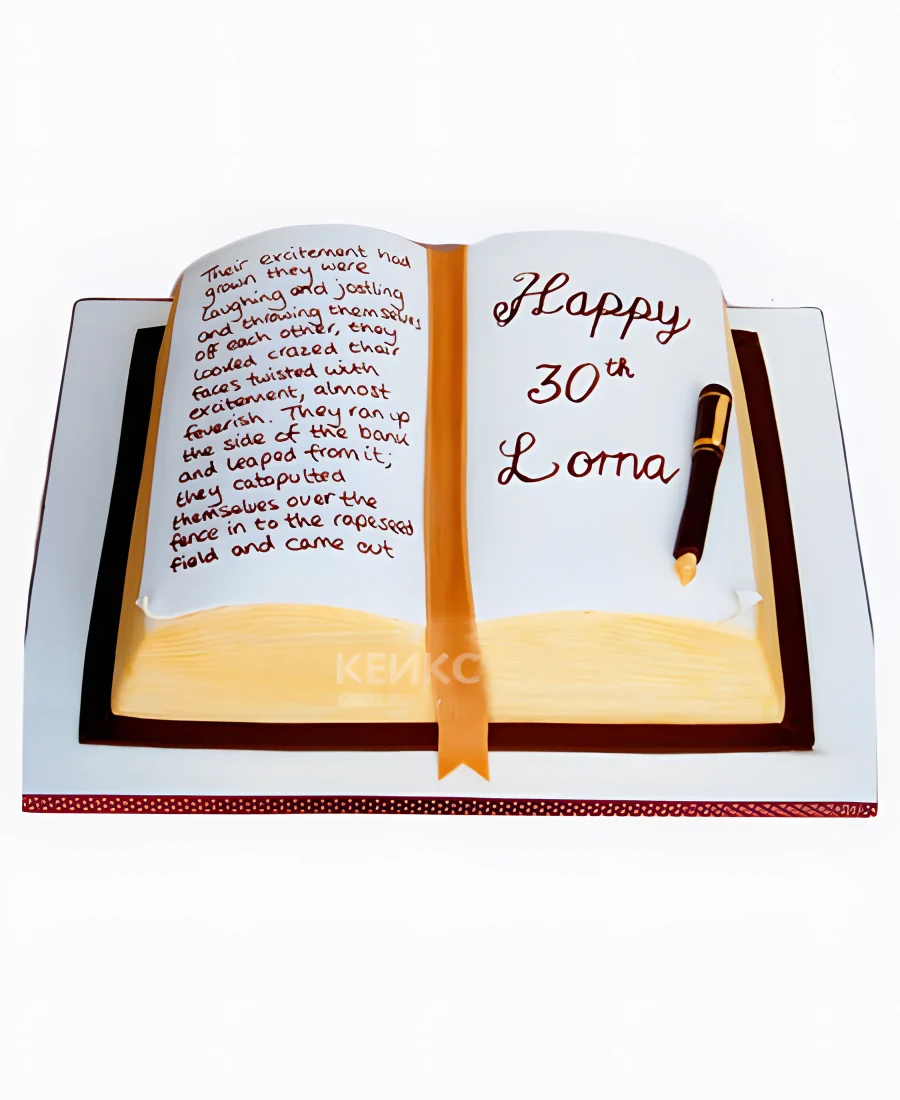 Their excitement had
grown they were
laughing and jostling
and throwing themselves
off each other, they
looked crazed their
faces twisted with
excitement, almost
feverish. They ran up
the side of the bank
and leaped from it;
they catapulted
themselves over the
fence in to the rapeseed
field and came out
Happy
30th
Lorna
КЕЙКС